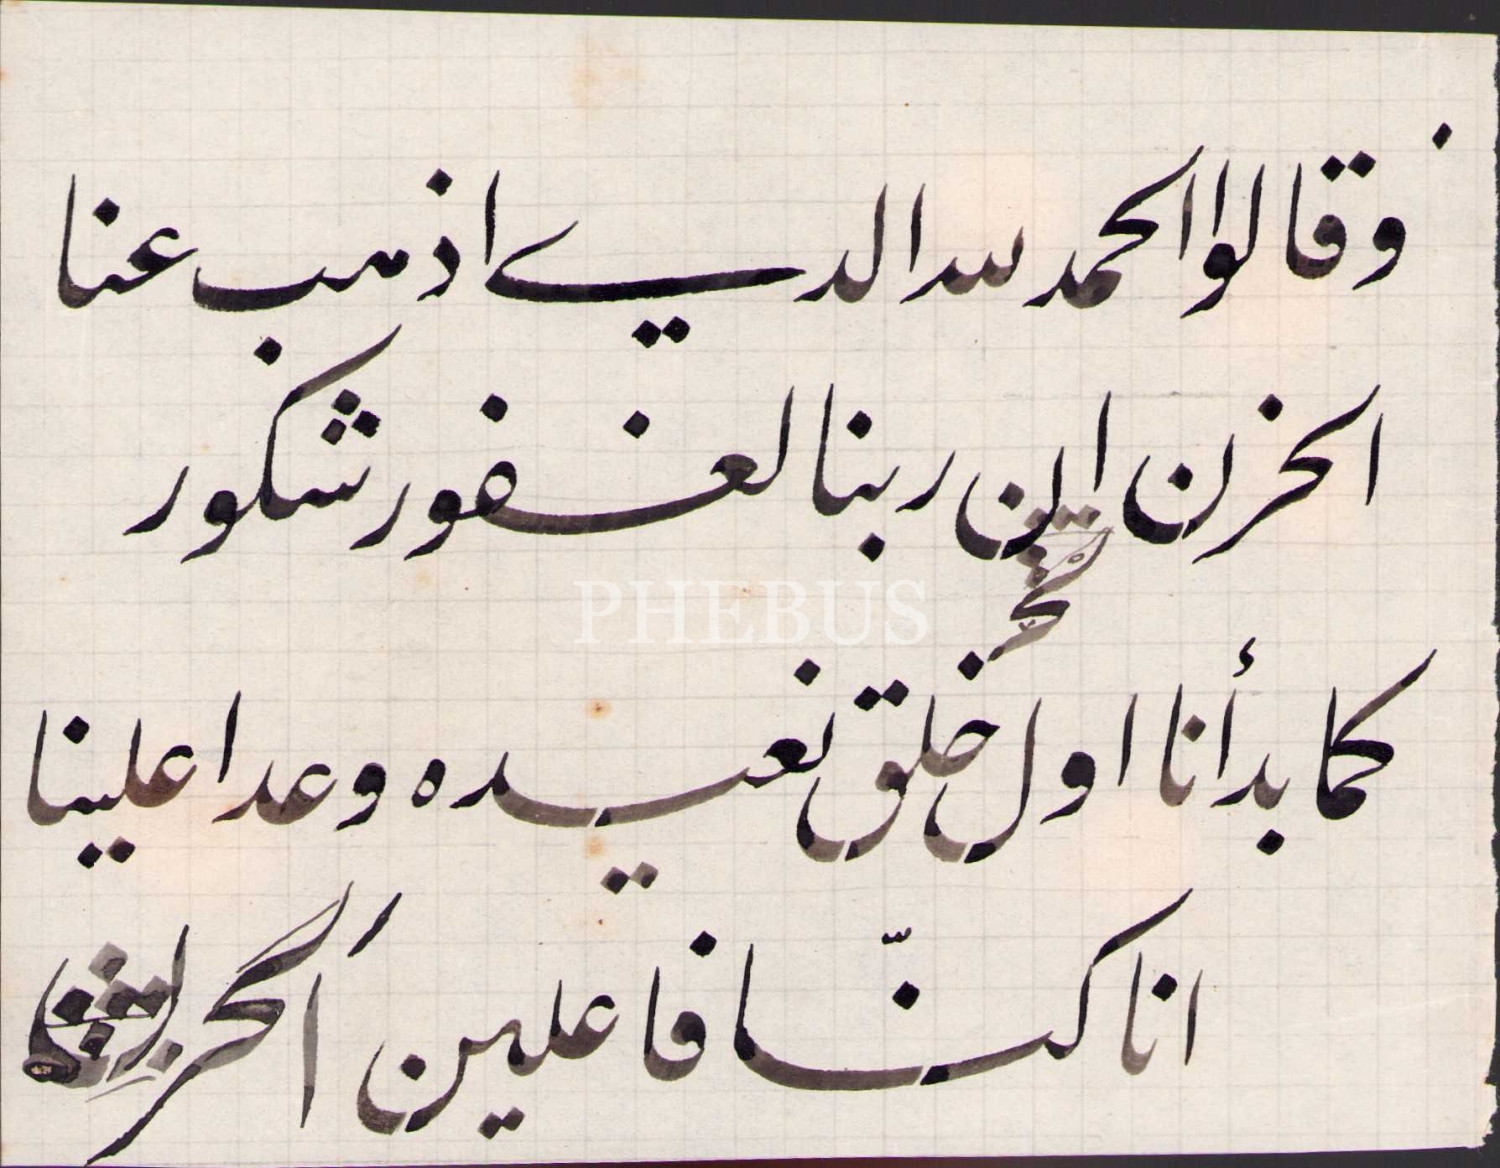 وقالوا الحمد لله الدي اذهب عنا
الحزن ان ربنا لغفور شكور
PHEBUS
كما بدأنا اول خلق نعيده وعدا علينا
انا كنّا فاعلين